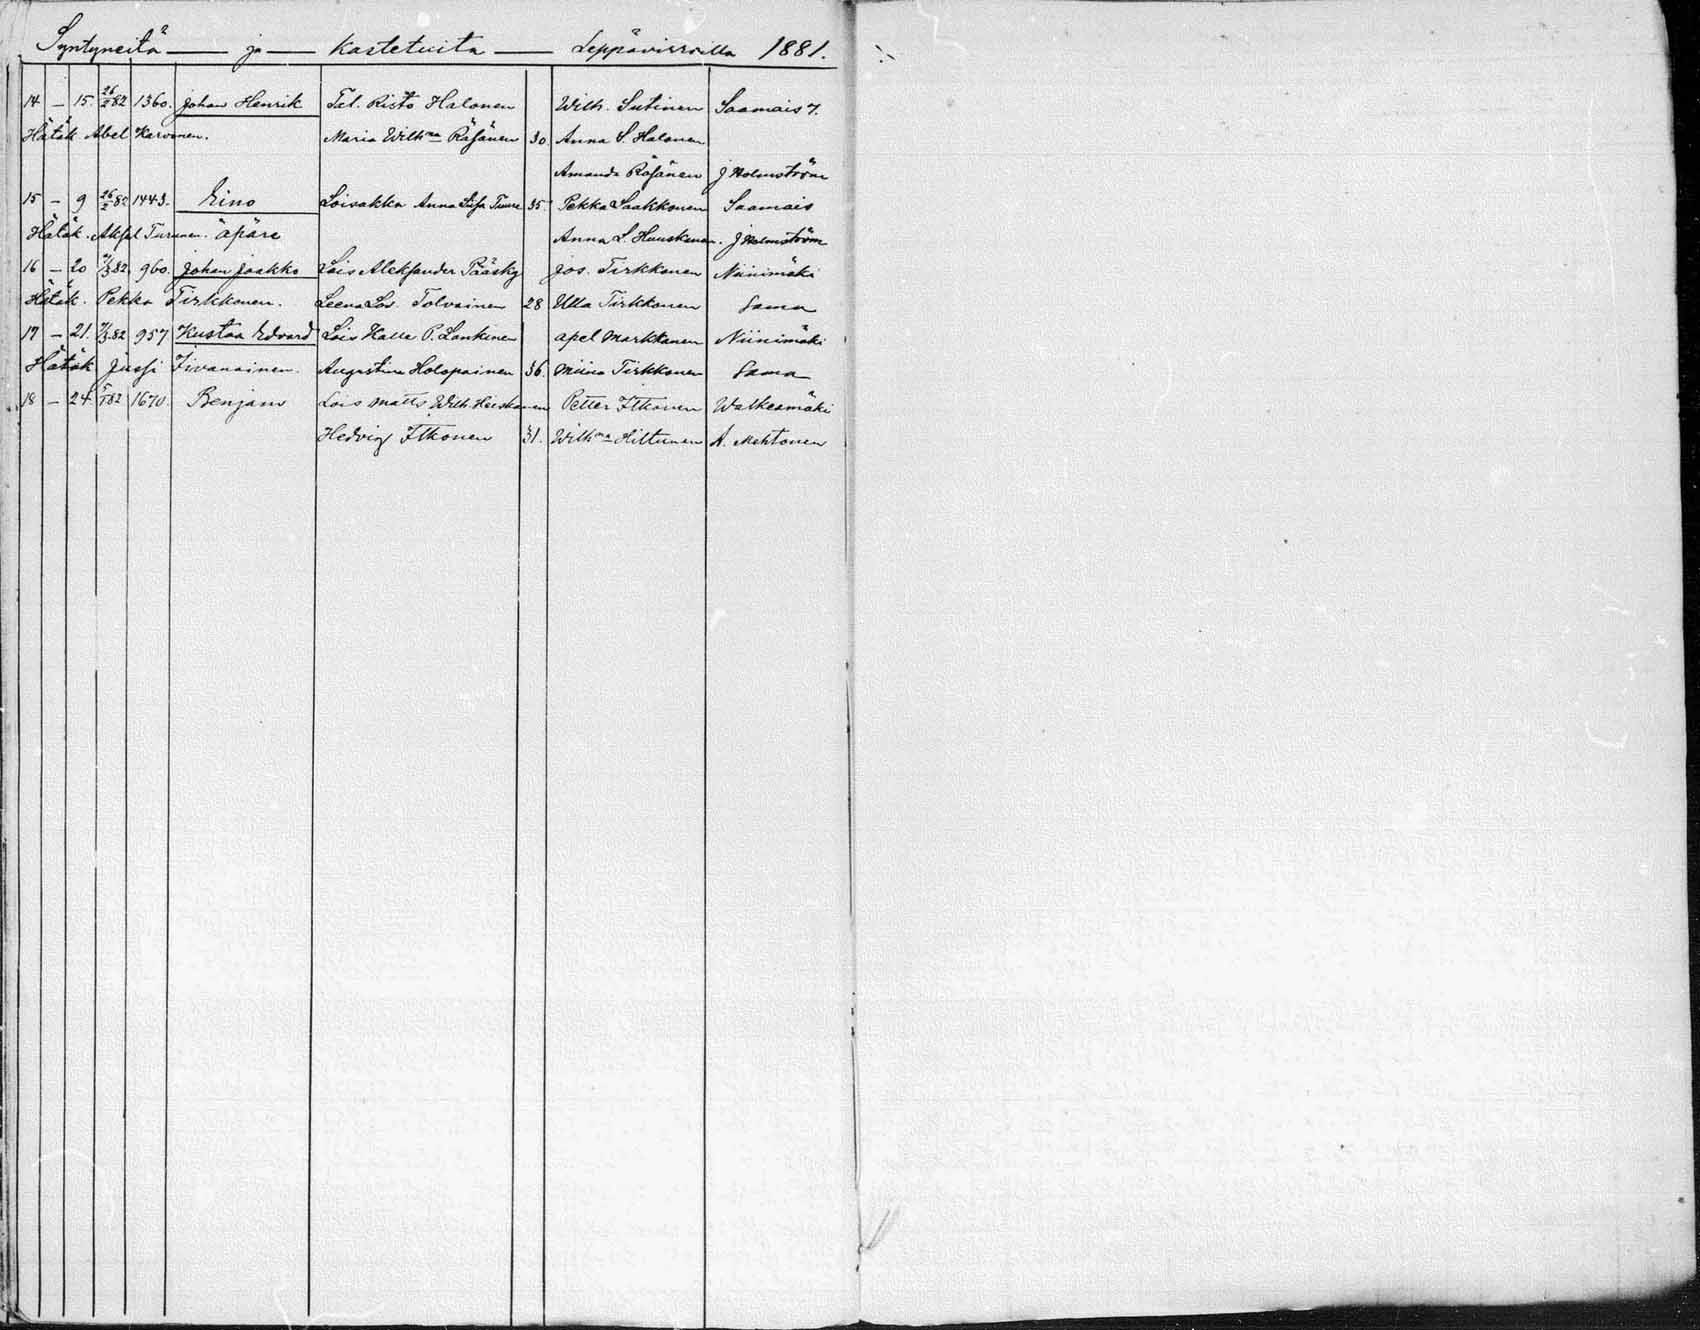 Syntyneitä — ja — kastetuita — Leppävirroilla 1881.
14 — 15. 26/2 82 1360. Johan Henrik Tel. Risto Halonen Wilh. Sutinen Saamais 7.
Hätäk Abel Karvonen. Maria Wilh:na Räsänen 30. Anna S. Halonen
Amanda Räsänen J Holmström
15 — 9 26/2 82 1443. Eino Loisakka Anna Liisa Tuure 35. Pekka Laakkonen Saamais
Hätäk. Aksel Turunen. äpärä Anna L. Huuskonen. J Holmström
16 — 20 /3 82. 960. Johan Jaakko Lois Aleksander Pääsky Jos. Tirkkonen Niinimäki
Hätäk. Pekka Tirkkonen. Leena Lov. Tolvainen 28 Ulla Tirkkonen Sama
17 — 21. /3 82 957 Kustaa Edvard Lois Kalle P. Lankinen Apel Markkanen Niinimäki
Hätäk Jussi Iivanainen. Augustina Holopainen 36. Miina Tirkkonen Sama
18 — 24. /1 82 1670. Benjam Lois Matts Wilh. Heiskanen Petter Itkonen Walkeamäki
Hedvig Itkonen 31. Wilh:na Hiltunen A. Mehtonen